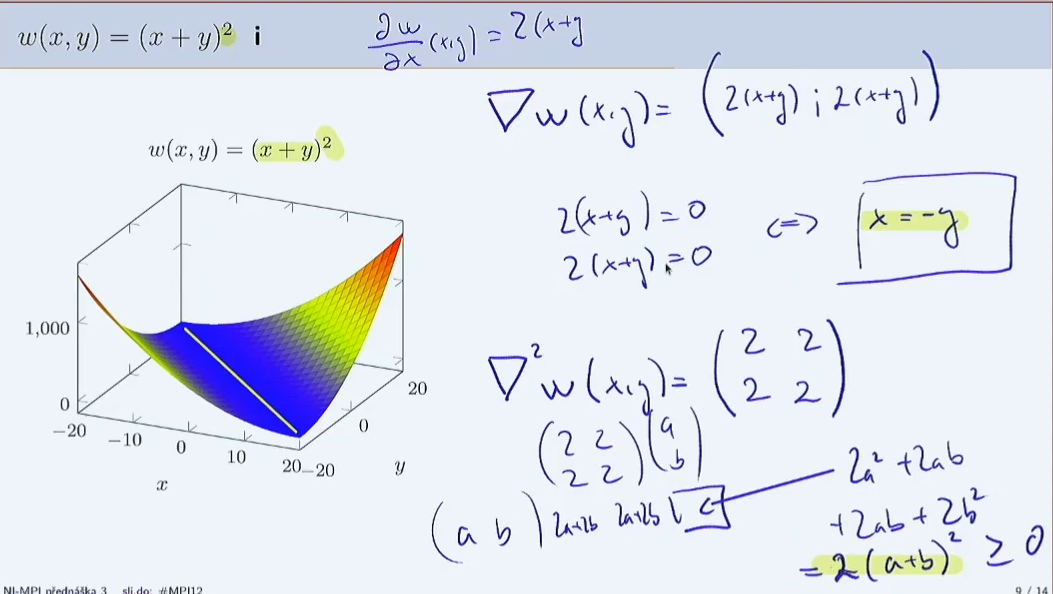 w(x, y) = (x + y)² i
∂w/∂x (x,y) = 2(x+y
∇w(x,y) = (2(x+y) ; 2(x+y))
w(x, y) = (x + y)²
2(x+y) = 0
2(x+y) = 0
<=> x = -y
1,000
0
−20
−10
0
10
20
−20
0
20
x
y
∇²w(x,y) = (2 2
2 2)
(2 2
2 2) (a
b)
(a b) 2a+2b 2a+2b
2a² + 2ab
+ 2ab + 2b²
= 2(a+b)² ≥ 0
NI-MPI přednáška 3 sli.do: #MPI12
9 / 14